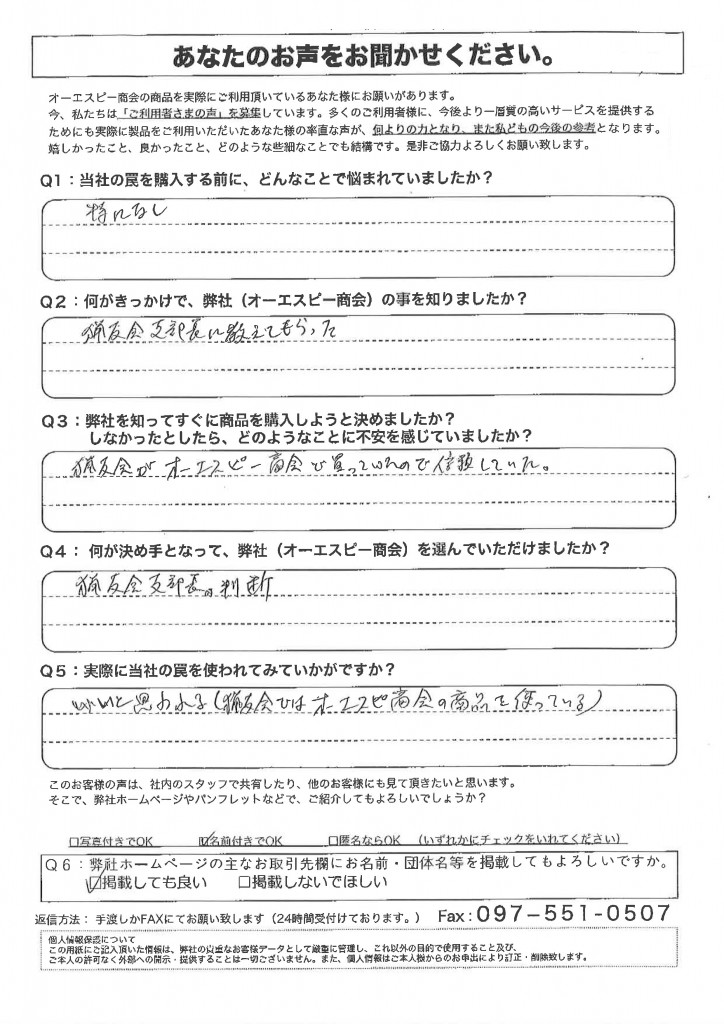 あなたのお声をお聞かせください。
オーエスピー商会の商品を実際にご利用頂いているあなた様にお願いがあります。
今、私たちは「ご利用者さまの声」を募集しています。多くのご利用者様に、今後より一層質の高いサービスを提供する
ためにも実際に製品をご利用いただいたあなた様の率直な声が、何よりの力となり、また私どもの今後の参考となります。
嬉しかったこと、良かったこと、どのような些細なことでも結構です。是非ご協力よろしくお願い致します。
Q1：当社の罠を購入する前に、どんなことで悩まれていましたか？
特になし
Q2：何がきっかけで、弊社（オーエスピー商会）の事を知りましたか？
猟友会支部長に教えてもらった
Q3：弊社を知ってすぐに商品を購入しようと決めましたか？
しなかったとしたら、どのようなことに不安を感じていましたか？
猟友会がオーエスピー商会で買っていたので信頼していた。
Q4： 何が決め手となって、弊社（オーエスピー商会）を選んでいただけましたか？
猟友会支部長の判断
Q5：実際に当社の罠を使われてみていかがですか？
いいと思われる（猟友会ではオーエスピ商会の商品を使っている）
このお客様の声は、社内のスタッフで共有したり、他のお客様にも見て頂きたいと思います。
そこで、弊社ホームページやパンフレットなどで、ご紹介してもよろしいでしょうか？
□写真付きでOK ☑名前付きでOK □匿名ならOK （いずれかにチェックをいれてください）
Q6：弊社ホームページの主なお取引先欄にお名前・団体名等を掲載してもよろしいですか。
☑掲載しても良い □掲載しないでほしい
返信方法： 手渡しかFAXにてお願い致します（24時間受付ております。） Fax：097−551−0507
個人情報保護について
この用紙にご記入頂いた情報は、弊社の貴重なお客様データとして厳重に管理し、これ以外の目的で使用すること及び、
ご本人の許可なく外部への開示・提供することは一切ございません。また、個人情報はご本人様からのお申出により訂正・削除致します。